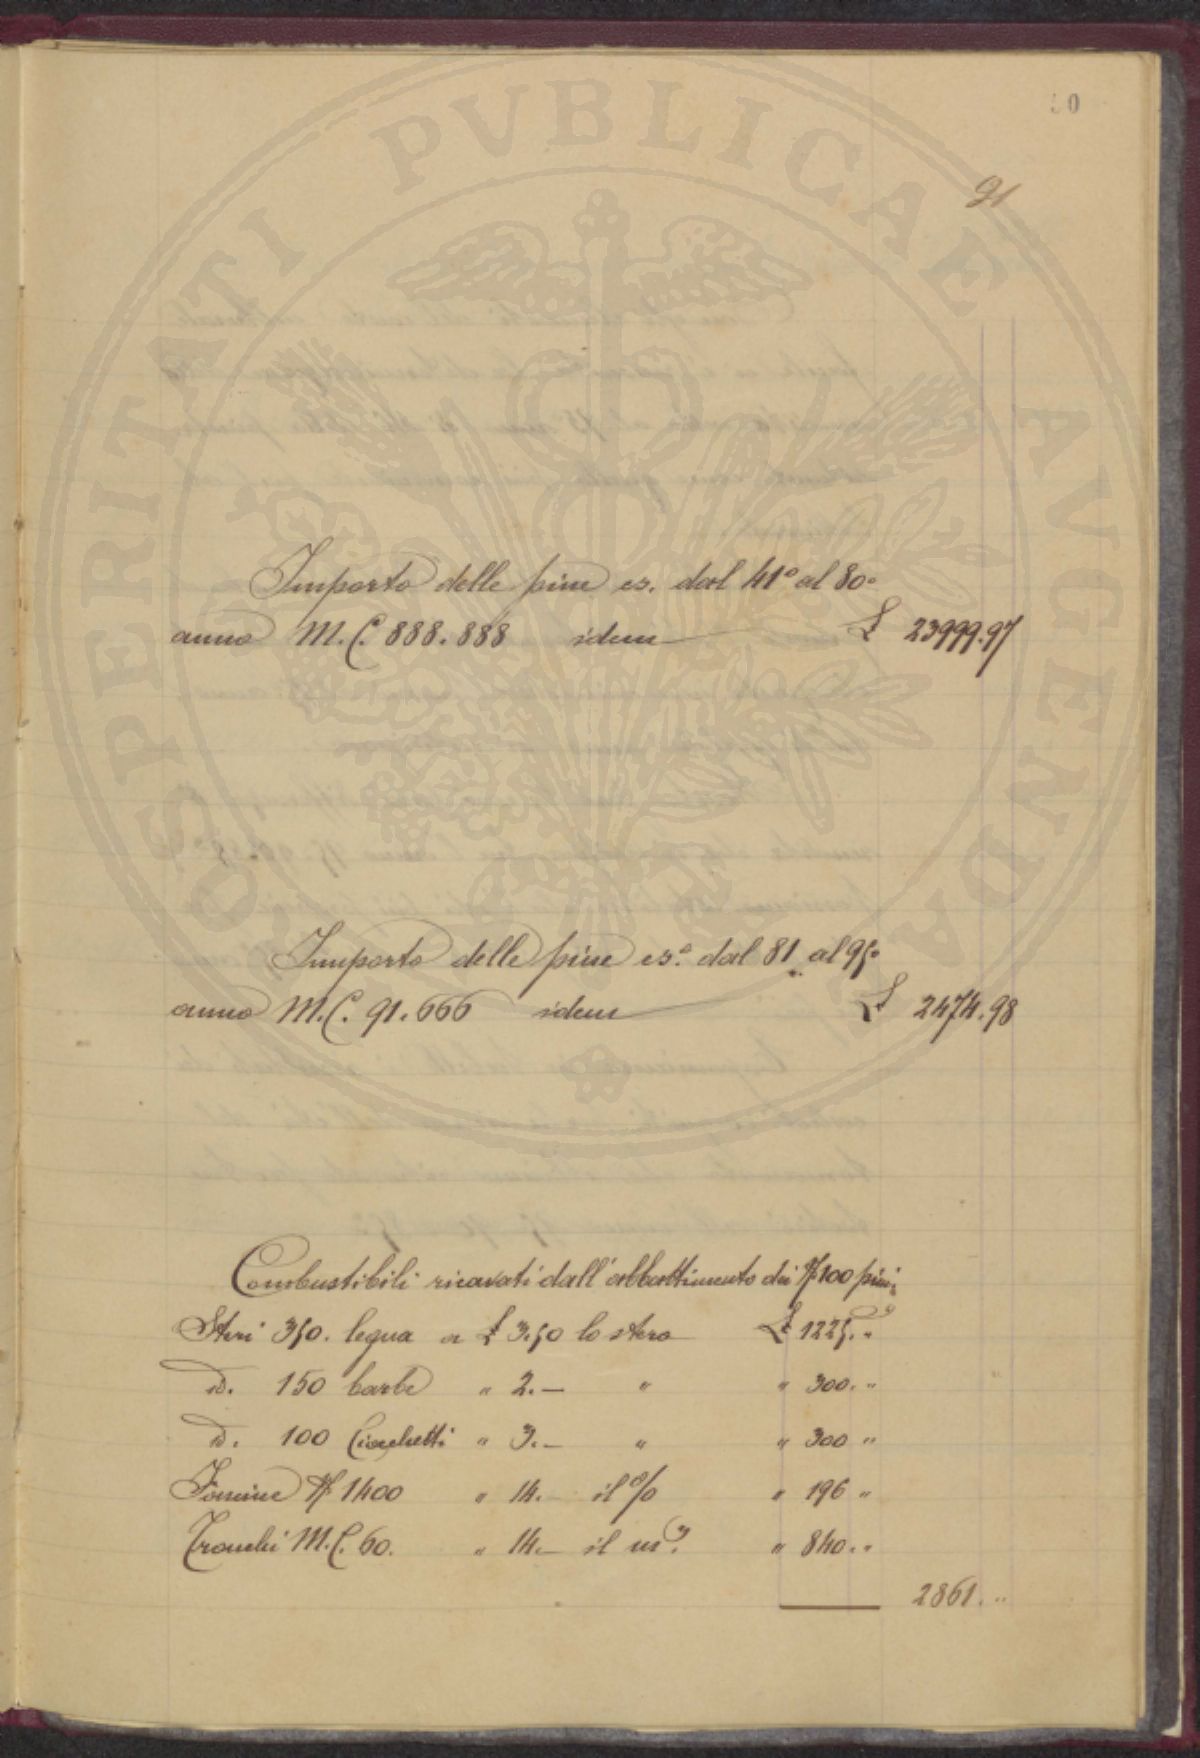 50
91
PROSPERITATI PVBLICAE AVGENDAE
Importo delle pine es. dal 41° al 80°
anno M.C. 888.888 idem £ 23999.97
Importo delle pine es.° dal 81 al 95°
anno M.C. 91.666 idem £ 2474.98
Combustibili ricavati dall'abbattimento dei N° 100 pini
Steri 350. legna a £ 3.50 lo stero £ 1225."
id. 150 barbe " 2.— " " 300."
id. 100 Ciocchetti " 3.— " " 300 "
Fascine N° 1400 " 14.— il % " 196 "
Tronchi M.C. 60. " 14.— il m³. " 840."
2861."